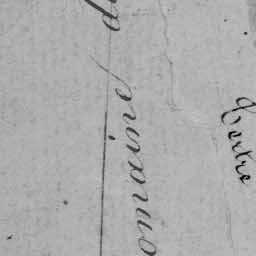 omaine d
Tertre